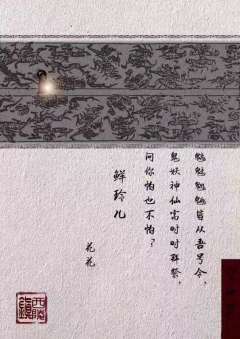 魑魅魍魉皆从吾号令,
鬼妖神仙 时时 祭,
问你怕也不怕?
鲜玲儿
花花